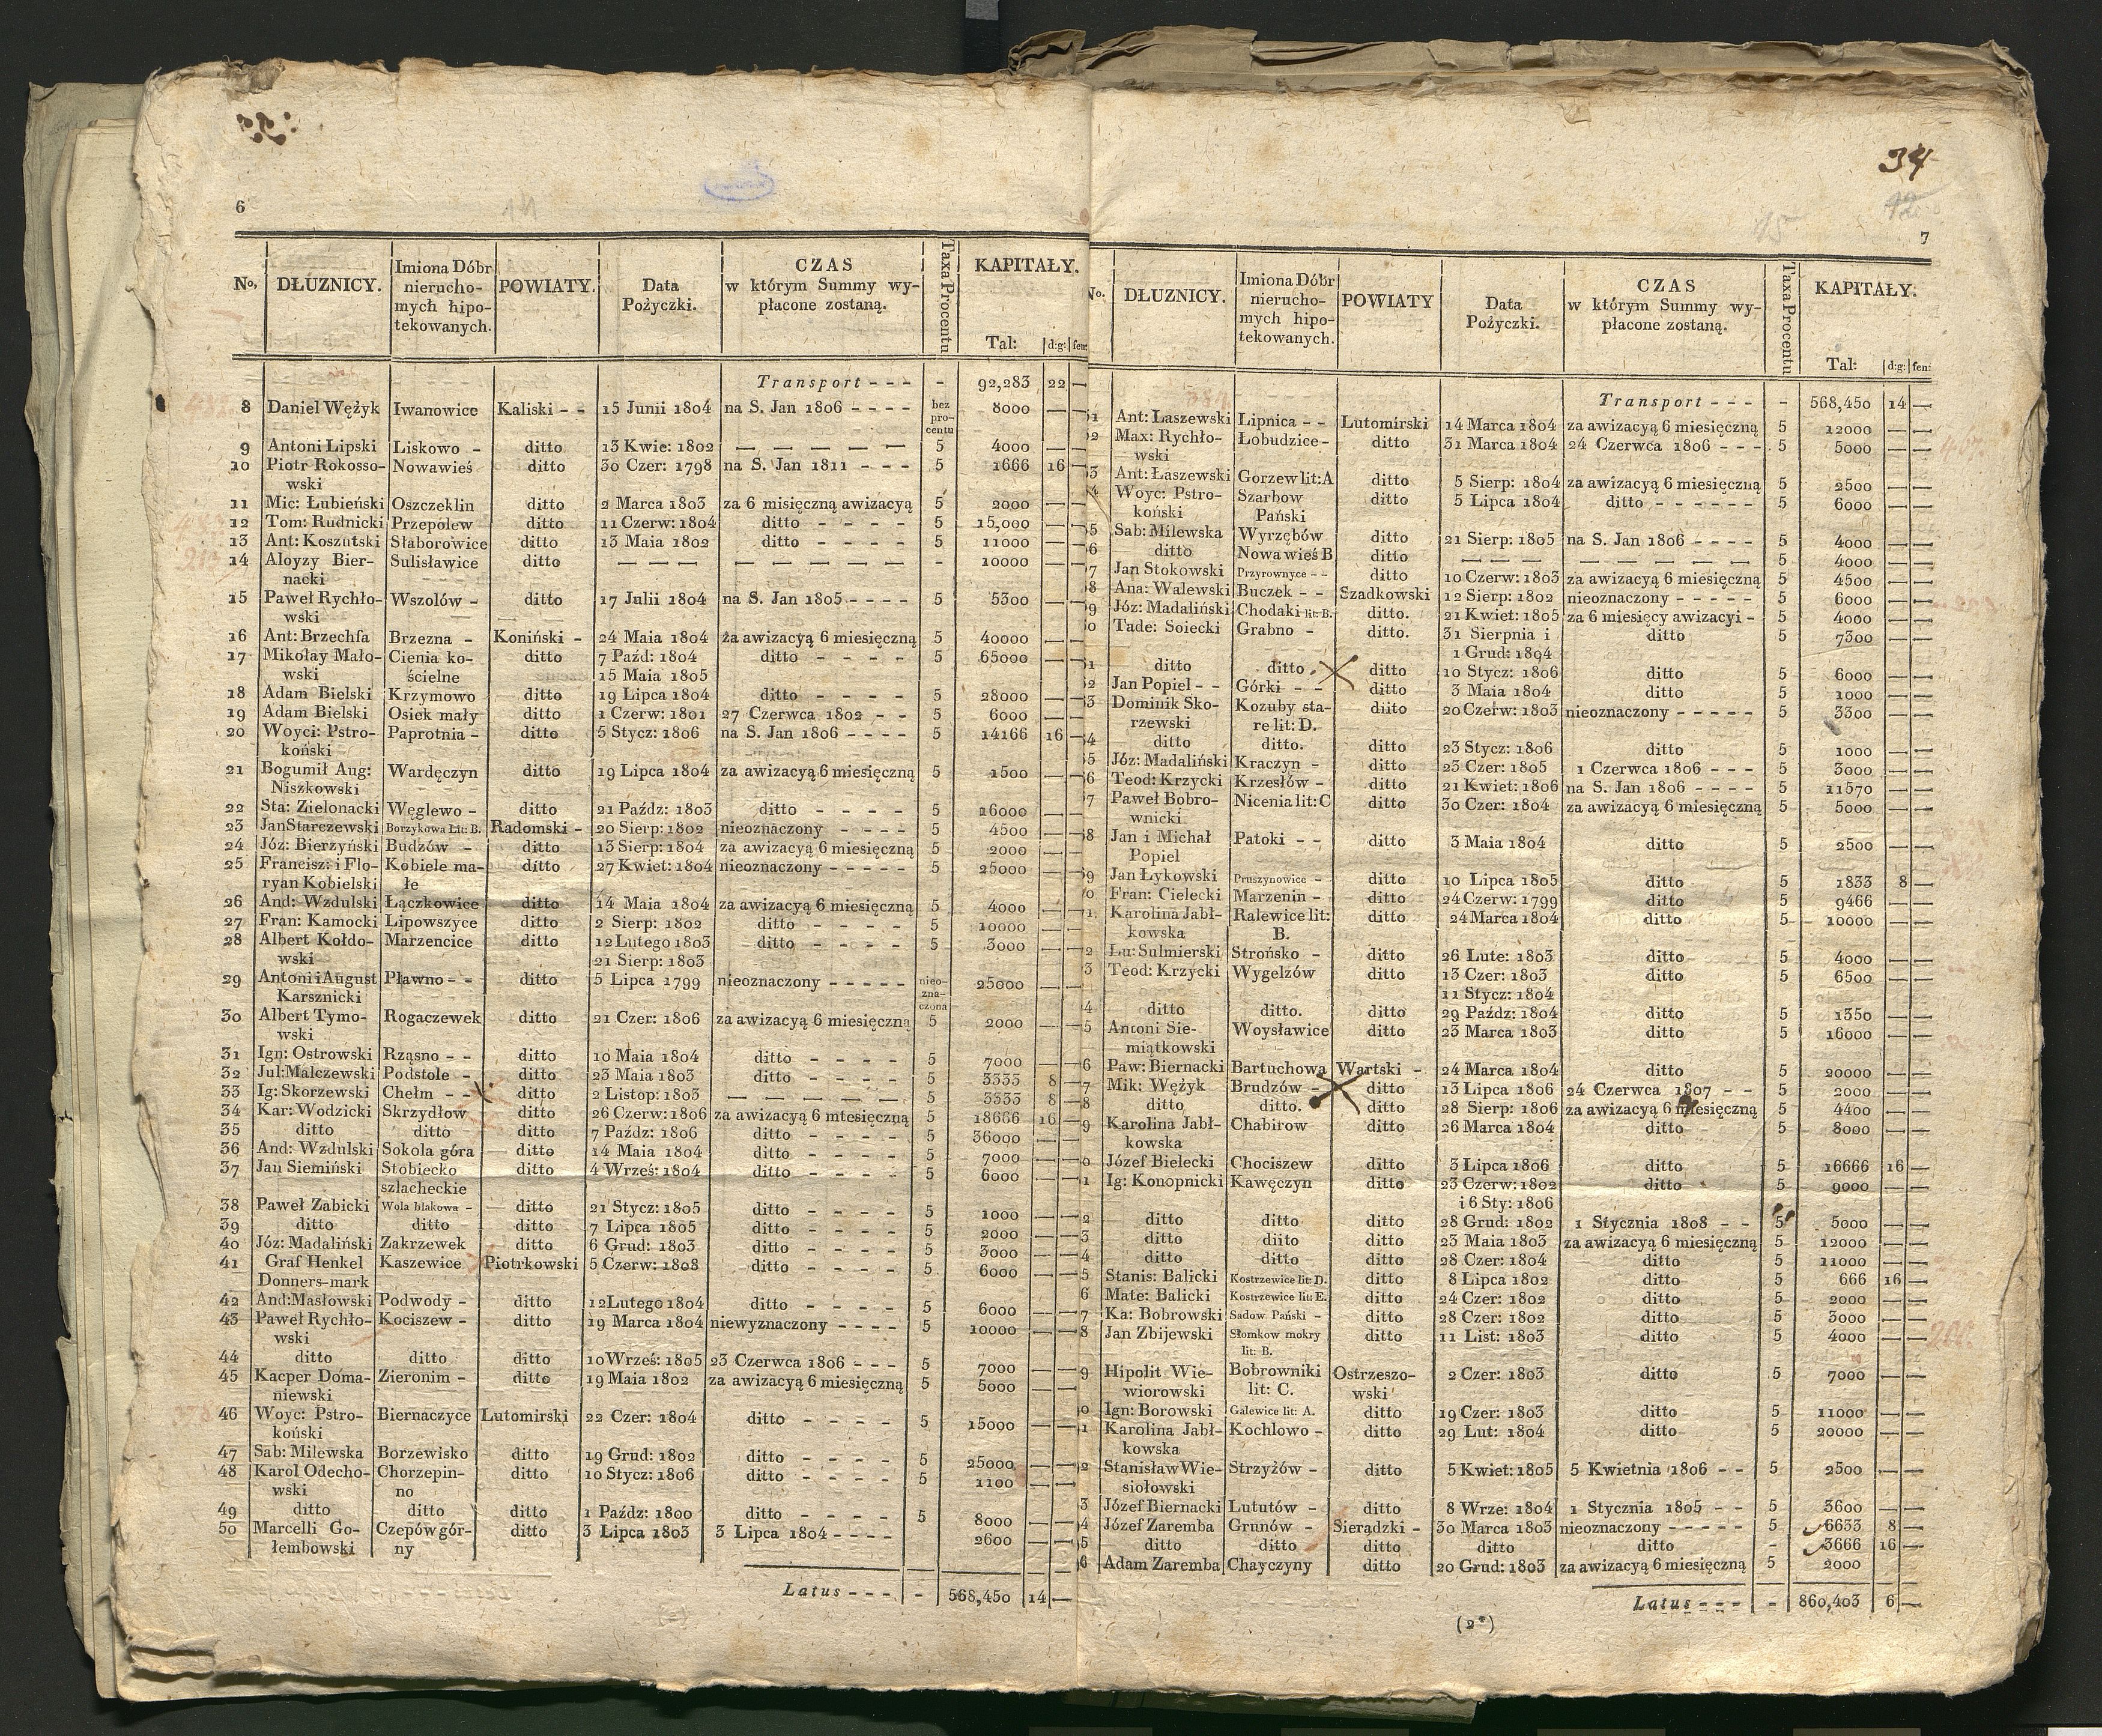 6
No. DŁUZNICY. Imiona Dóbr nieruchomych hipotekowanych. POWIATY. Data Pożyczki. CZAS w którym Summy wypłacone zostaną. Taxa Procentu KAPITAŁY. Tal: d:g: fen:
Transport - - - - 92,283 22 —
8 Daniel Wężyk Iwanowice Kaliski - - 15 Junii 1804 na S. Jan 1806 - - - - bez procentu 8000 — —
9 Antoni Lipski Liskowo - ditto 13 Kwie: 1802 — — — — — 5 4000 — —
10 Piotr Rokosso- Nowawieś ditto 30 Czer: 1798 na S. Jan 1811 - - - 5 1666 16 —
wski
11 Mic: Łubieński Oszczeklin ditto 2 Marca 1803 za 6 misięczną awizacyą 5 2000 — —
12 Tom: Rudnicki Przepolew ditto 11 Czerw: 1804 ditto - - - - 5 15,000 — —
13 Ant: Koszutski Słaborowice ditto 13 Maia 1802 ditto - - - - 5 11000 — —
14 Aloyzy Bier- Sulisławice ditto — — — — — — — — - 10000 — —
nacki
15 Paweł Rychło- Wszolów - ditto 17 Julii 1804 na S. Jan 1805 - - - - 5 5300 — —
wski
16 Ant: Brzechfa Brzezna - Koniński - 24 Maia 1804 za awizacyą 6 miesięczną 5 40000 — —
17 Mikołay Mało- Cienia ko- ditto 7 Paźd: 1804 ditto - - - - 5 65000 — —
wski ścielne 15 Maia 1805
18 Adam Bielski Krzymowo ditto 19 Lipca 1804 ditto - - - - 5 28000 — —
19 Adam Bielski Osiek mały ditto 1 Czerw: 1801 27 Czerwca 1802 - - 5 6000 — —
20 Woyci: Pstro- Paprotnia - ditto 5 Stycz: 1806 na S. Jan 1806 - - - - 5 14166 16 —
koński
21 Bogumił Aug: Wardęczyn ditto 19 Lipca 1804 za awizacyą 6 miesięczną 5 1500 — —
Niszkowski
22 Sta: Zielonacki Węglewo - ditto 21 Paźdz: 1803 ditto - - - - 5 16000 — —
23 Jan Starczewski Borzykowa Lit: B. Radomski - 20 Sierp: 1802 nieoznaczony - - - - 5 4500 — —
24 Józ: Bierzyński Budzów - ditto 13 Sierp: 1804 za awizacyą 6 miesięczną 5 2000 — —
25 Francisz: i Flo- Kobiele ma- ditto 27 Kwiet: 1804 nieoznaczony - - - - - 5 25000 — —
ryan Kobielski łe
26 And: Wzdulski Łączkowice ditto 14 Maia 1804 za awizacyą 6 miesięczną 5 4000 — —
27 Fran: Kamocki Lipowszyce ditto 2 Sierp: 1802 ditto - - - - 5 10000 — —
28 Albert Kołdo- Marzencice ditto 12 Lutego 1803 ditto - - - - 5 3000 — —
wski 21 Sierp: 1803
29 Antoni i August Pławno - - ditto 5 Lipca 1799 nieoznaczony - - - - - nieoznaczona 25000 — —
Karsznicki
30 Albert Tymo- Rogaczewek ditto 21 Czer: 1806 za awizacyą 6 miesięczną 5 2000 — —
wski
31 Ign: Ostrowski Rząsno - - ditto 10 Maia 1804 ditto - - - - 5 7000 — —
32 Jul: Malczewski Podstole - ditto 23 Maia 1803 ditto - - - - 5 3333 8 —
33 Ig: Skorzewski Chełm - - ditto 2 Listop: 1803 — — — — — 5 3333 8 —
34 Kar: Wodzicki Skrzydłow ditto 26 Czerw: 1806 za awizacyą 6 mtesięczną 5 18666 16 —
35 ditto ditto ditto 7 Paźdz: 1806 ditto - - - - 5 36000 — —
36 And: Wzdulski Sokola góra ditto 14 Maia 1804 ditto - - - - 5 7000 — —
37 Jan Siemiński Stobiecko ditto 4 Wrześ: 1804 ditto - - - - 5 6000 — —
szlacheckie
38 Paweł Zabicki Wola blakowa - ditto 21 Stycz: 1805 ditto - - - - 5 1000 — —
39 ditto ditto ditto 7 Lipca 1805 ditto - - - - 5 2000 — —
40 Józ: Madaliński Zakrzewek ditto 6 Grud: 1803 ditto - - - - 5 3000 — —
41 Graf Henkel Kaszewice Piotrkowski 5 Czerw: 1808 ditto - - - - 5 6000 — —
Donners-mark
42 And: Masłowski Podwody - ditto 12 Lutego 1804 ditto - - - - 5 6000 — —
43 Paweł Rychło- Kociszew - ditto 19 Marca 1804 niewyznaczony - - - - 5 10000 — —
wski
44 ditto ditto ditto 10 Wrześ: 1805 23 Czerwca 1806 - - - 5 7000 — —
45 Kacper Doma- Zieronim - ditto 19 Maia 1802 za awizacyą 6 miesięczną 5 5000 — —
niewski
46 Woyc: Pstro- Biernaczyce Lutomirski 22 Czer: 1804 ditto - - - - 5 15000 — —
koński
47 Sab: Milewska Borzewisko ditto 19 Grud: 1802 ditto - - - - 5 25000 — —
48 Karol Odecho- Chorzepin- ditto 10 Stycz: 1806 ditto - - - - 5 1100 — —
wski no
49 ditto ditto ditto 1 Paźdz: 1800 ditto - - - - 5 8000 — —
50 Marcelli Go- Czepów gór- ditto 3 Lipca 1803 3 Lipca 1804 - - - - 2600 — —
łembowski ny
Latus - - - - 568,450 14 —
34
7
No. DŁUZNICY. Imiona Dóbr nieruchomych hipotekowanych. POWIATY Data Pożyczki. CZAS w którym Summy wypłacone zostaną. Taxa Procentu KAPITAŁY. Tal: d:g: fen:
Transport - - - - 568,450 14 —
1 Ant: Łaszewski Lipnica - - Lutomirski 14 Marca 1804 za awizacyą 6 miesięczną 5 12000 — —
2 Max: Rychło- Łobudzice - ditto 31 Marca 1804 24 Czerwca 1806 - - - 5 5000 — —
wski
3 Ant: Łaszewski Gorzew lit: A ditto 5 Sierp: 1804 za awizacyą 6 miesięczną 5 2500 — —
4 Woyc: Pstro- Szarbow ditto 5 Lipca 1804 ditto - - - - - - 5 6000 — —
koński Pański
5 Sab: Milewska Wyrzębów ditto 21 Sierp: 1805 na S. Jan 1806 - - - - 5 4000 — —
6 ditto Nowa wieś B ditto — — — — — — — — 5 4000 — —
7 Jan Stokowski Przyrownyce - - ditto 10 Czerw: 1803 za awizacyą 6 miesięczną 5 4500 — —
8 Ana: Walewski Buczek - - Szadkowski 12 Sierp: 1802 nieoznaczony - - - - - 5 6000 — —
9 Józ: Madaliński Chodaki lit: B. ditto. 21 Kwiet: 1805 za 6 miesięcy awizacyi - 5 4000 — —
0 Tade: Soiecki Grabno - ditto. 31 Sierpnia i ditto 5 7300 — —
1 Grud: 1804
1 ditto ditto ditto 10 Stycz: 1806 ditto 5 6000 — —
2 Jan Popiel - - Górki - - ditto 3 Maia 1804 ditto 5 1000 — —
3 Dominik Sko- Kozuby sta- diito 20 Czerw: 1803 nieoznaczony - - - - - 5 3300 — —
rzewski re lit: D.
4 ditto ditto. ditto 23 Stycz: 1806 ditto 5 1000 — —
5 Józ: Madaliński Kraczyn - ditto 23 Czer: 1805 1 Czerwca 1806 - - - 5 3000 — —
6 Teod: Krzycki Krzesłów - ditto 21 Kwiet: 1806 na S. Jan 1806 - - - - 5 11570 — —
7 Paweł Bobro- Nicenia lit: C ditto 30 Czer: 1804 za awizacyą 6 miesięczną 5 5000 — —
wnicki
8 Jan i Michał Patoki - - ditto 3 Maia 1804 ditto 5 2500 — —
Popiel
9 Jan Łykowski Pruszynowice - ditto 10 Lipca 1805 ditto 5 1833 8 —
0 Fran: Cielecki Marzenin - ditto 24 Czerw: 1799 ditto 5 9466 — —
1 Karolina Jabł- Ralewice lit: ditto 24 Marca 1804 ditto 5 10000 — —
kowska B.
2 Lu: Sulmierski Strońsko - ditto 26 Lute: 1803 ditto 5 4000 — —
3 Teod: Krzycki Wygelzów ditto 13 Czer: 1803 ditto 5 6500 — —
11 Stycz: 1804
4 ditto ditto. ditto 29 Paźdz: 1804 ditto 5 1350 — —
5 Antoni Sie- Woysławice ditto 23 Marca 1803 ditto 5 16000 — —
miątkowski
6 Paw: Biernacki Bartuchowa Wartski - 24 Marca 1804 ditto 5 20000 — —
7 Mik: Wężyk Brudzów - ditto 13 Lipca 1806 24 Czerwca 1807 - - 5 2000 — —
8 ditto ditto. ditto 28 Sierp: 1806 za awizacyą 6 miesięczną 5 4400 — —
9 Karolina Jabł- Chabirow ditto 26 Marca 1804 ditto 5 8000 — —
kowska
0 Józef Bielecki Chociszew ditto 3 Lipca 1806 ditto 5 16666 16 —
1 Ig: Konopnicki Kawęczyn ditto 23 Czerw: 1802 ditto 5 9000 — —
i 6 Sty: 1806
2 ditto ditto ditto 28 Grud: 1802 1 Stycznia 1808 - - 5 5000 — —
3 ditto diito ditto 23 Maia 1803 za awizacyą 6 miesięczną 5 12000 — —
4 ditto ditto ditto 28 Czer: 1804 ditto 5 11000 — —
5 Stanis: Balicki Kostrzewice lit: D. ditto 8 Lipca 1802 ditto 5 666 16 —
6 Mate: Balicki Kostrzewice lit: E. ditto 24 Czer: 1802 ditto 5 2000 — —
7 Ka: Bobrowski Sadow Pański - ditto 28 Czer: 1802 ditto 5 3000 — —
8 Jan Zbijewski Słomkow mokry ditto 11 List: 1803 ditto 5 4000 — —
lit: B.
9 Hipolit Wie- Bobrowniki Ostrzeszo- 2 Czer: 1803 ditto 5 7000 — —
wiorowski lit: C. wski
0 Ign: Borowski Galewice lit: A. ditto 19 Czer: 1803 ditto 5 11000 — —
1 Karolina Jabł- Kochlowo - ditto 29 Lut: 1804 ditto 5 20000 — —
kowska
2 Stanisław Wie- Strzyżów - ditto 5 Kwiet: 1805 5 Kwietnia 1806 - - 5 2500 — —
siołowski
3 Józef Biernacki Lututów - ditto 8 Wrze: 1804 1 Stycznia 1805 - - 5 3600 — —
4 Józef Zaremba Grunów - Sieradzki - 30 Marca 1803 nieoznaczony - - - - - 5 6633 8 —
5 ditto ditto ditto ditto ditto - 3666 16 —
6 Adam Zaremba Chayczyny ditto 20 Grud: 1803 za awizacyą 6 miesięczną 5 2000 — —
Latus - - - - 860,403 6 —
(2*)